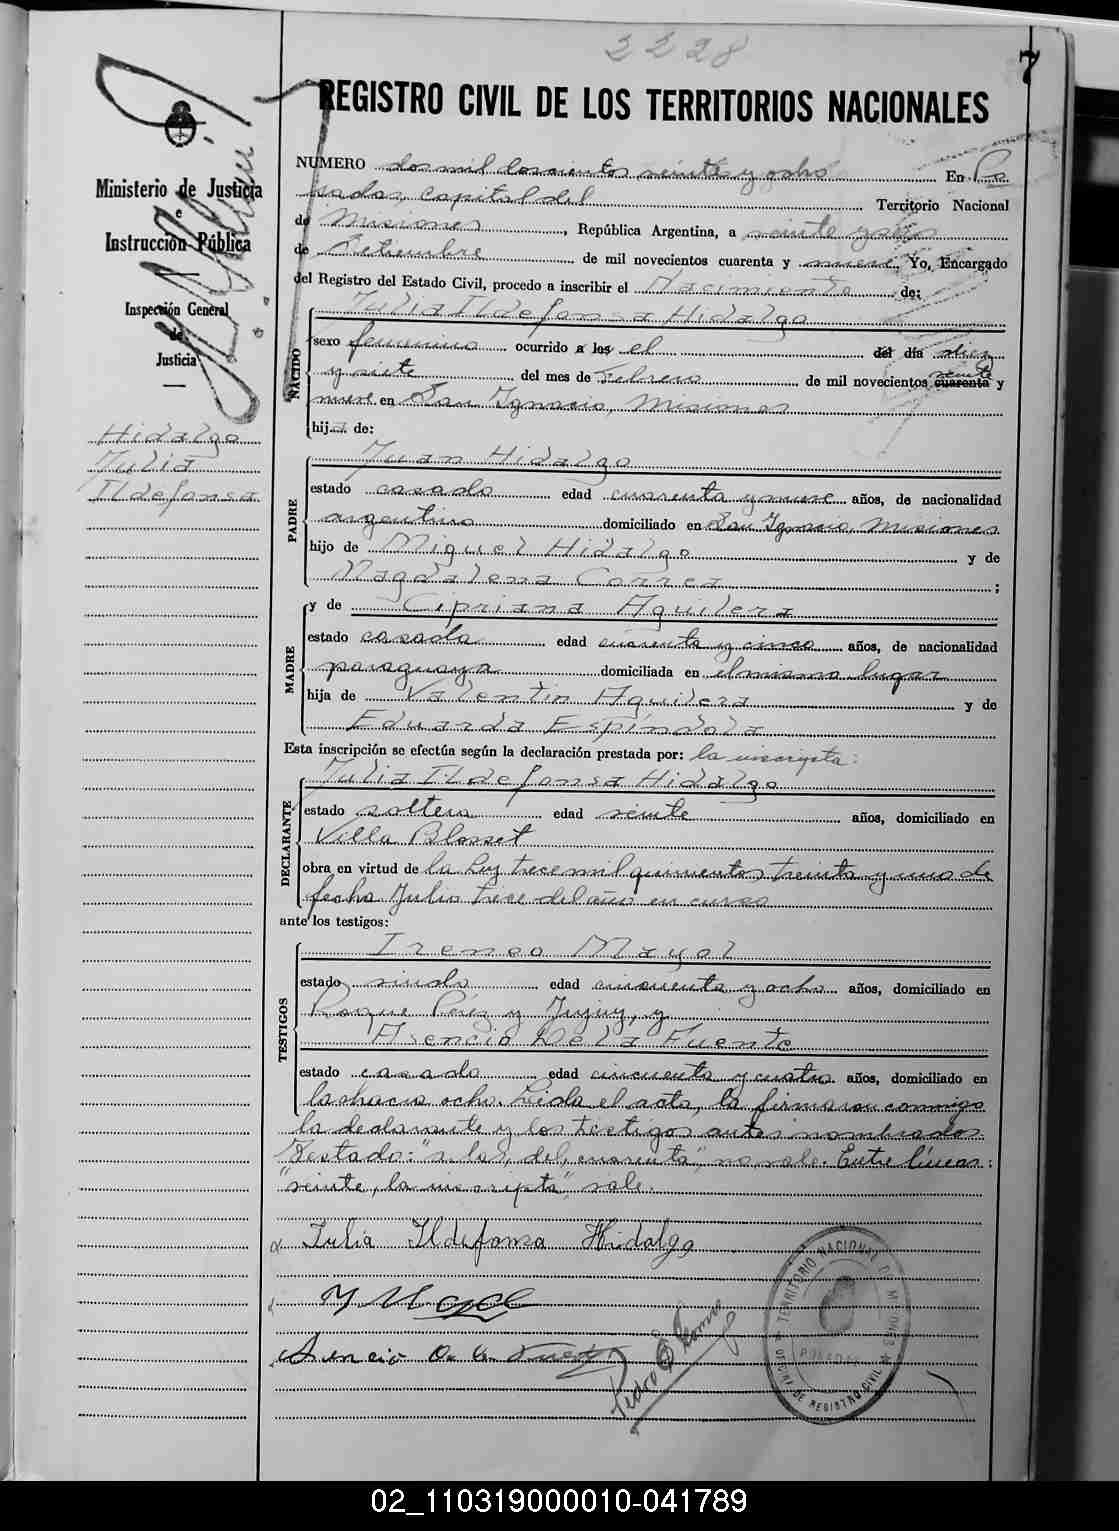 2228
7
REGISTRO CIVIL DE LOS TERRITORIOS NACIONALES
Ministerio de Justicia
e
Instrucción Pública
Inspección General
de
Justicia
Hidalgo
Julia
Ildefonsa
NUMERO dos mil doscientos veinte y ocho En Po
sadas, capital del Territorio Nacional
de Misiones, República Argentina, a veinte y seis
de Setiembre de mil novecientos cuarenta y nueve, Yo, Encargado
del Registro del Estado Civil, procedo a inscribir el Nacimiento de:
NACIDO
Julia Ildefonsa Hidalgo
sexo femenino ocurrido a las el del día diez
y siete del mes de Febrero de mil novecientos cuarenta veinte y
nueve en San Ignacio, Misiones
hija de:
PADRE
Juan Hidalgo
estado casado edad cuarenta y nueve años, de nacionalidad
argentino domiciliado en San Ignacio, Misiones
hijo de Miguel Hidalgo y de
Magdalena Correa ;
MADRE
y de Cipriana Aguilera
estado casada edad cuarenta y cinco años, de nacionalidad
paraguaya domiciliada en el mismo lugar
hija de Valentin Aguilera y de
Eduarda Espíndola
Esta inscripción se efectúa según la declaración prestada por: la inscripta:
DECLARANTE
Julia Ildefonsa Hidalgo
estado soltera edad veinte años, domiciliado en
Villa Blosset
obra en virtud de la Ley trece mil quinientos treinta y uno de
fecha Julio trece del año en curso
ante los testigos:
TESTIGOS
Ireneo Mayol
estado viudo edad cincuenta y ocho años, domiciliado en
Roque Pérez y Jujuy, y
Asencio De la Fuente
estado casado edad cincuenta y cuatro años, domiciliado en
la chacra ocho. Leida el acta, la firmaron conmigo
la declarante y los testigos antes nombrados
Testado: "a las, del, cuarenta", no vale. Entre líneas:
"veinte, la inscripta", vale.
Julia Ildefonsa Hidalgo
Asencio De la Fuente
Pedro
TERRITORIO NACIONAL DE MISIONES
POSADAS
OFICINA DE REGISTRO CIVIL
02_110319000010-041789